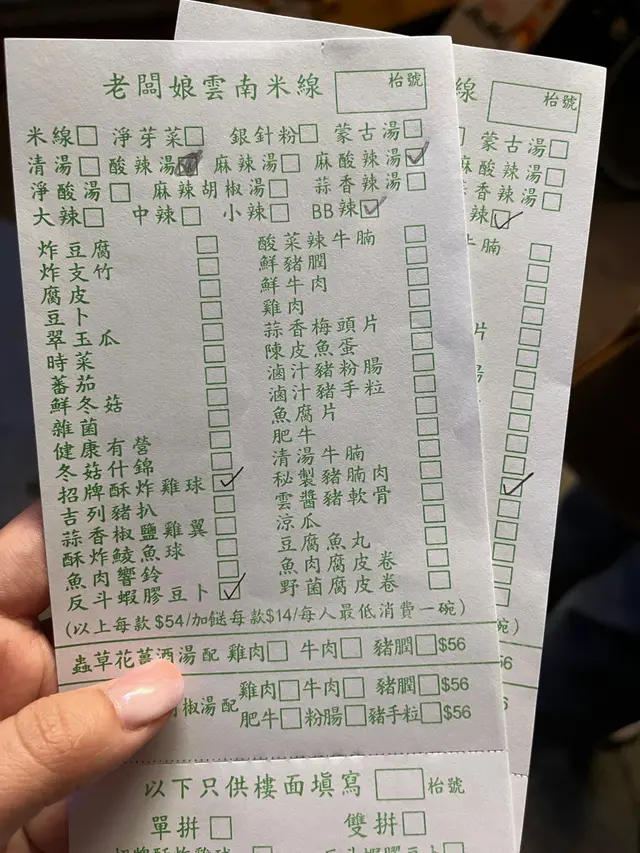 老闆娘雲南米線 枱號
米線 淨芽菜 銀針粉 蒙古湯
清湯 酸辣湯 麻辣湯 麻酸辣湯
淨酸湯 麻辣胡椒湯 蒜香辣湯
大辣 中辣 小辣 BB辣
炸豆腐
炸支竹
腐皮
豆卜
翠玉瓜
時菜
蕃茄
鮮冬菇
雜菌
健康有營
冬菇什錦
招牌酥炸雞球
吉列豬扒
蒜香椒鹽雞翼
酥炸鯪魚球
魚肉響鈴
反斗蝦膠豆卜
酸菜辣牛腩
鮮豬膶
鮮牛肉
雞肉
蒜香梅頭片
陳皮魚蛋
滷汁豬粉腸
滷汁豬手粒
魚腐片
肥牛
清湯牛腩
秘製豬腩肉
雲醬豬軟骨
涼瓜
豆腐魚丸
魚肉腐皮卷
野菌腐皮卷
(以上每款$54/加餸每款$14/每人最低消費一碗)
蟲草花薑酒湯配 雞肉 牛肉 豬膶 $56
雞肉 牛肉 豬膶 $56
椒湯配 肥牛 粉腸 豬手粒 $56
以下只供樓面填寫 枱號
單拼 雙拼
招牌酥炸雞球 反斗蝦膠豆卜
線
枱號
蒙古湯
麻酸辣湯
香辣湯
辣
牛腩
片
腸
碗)